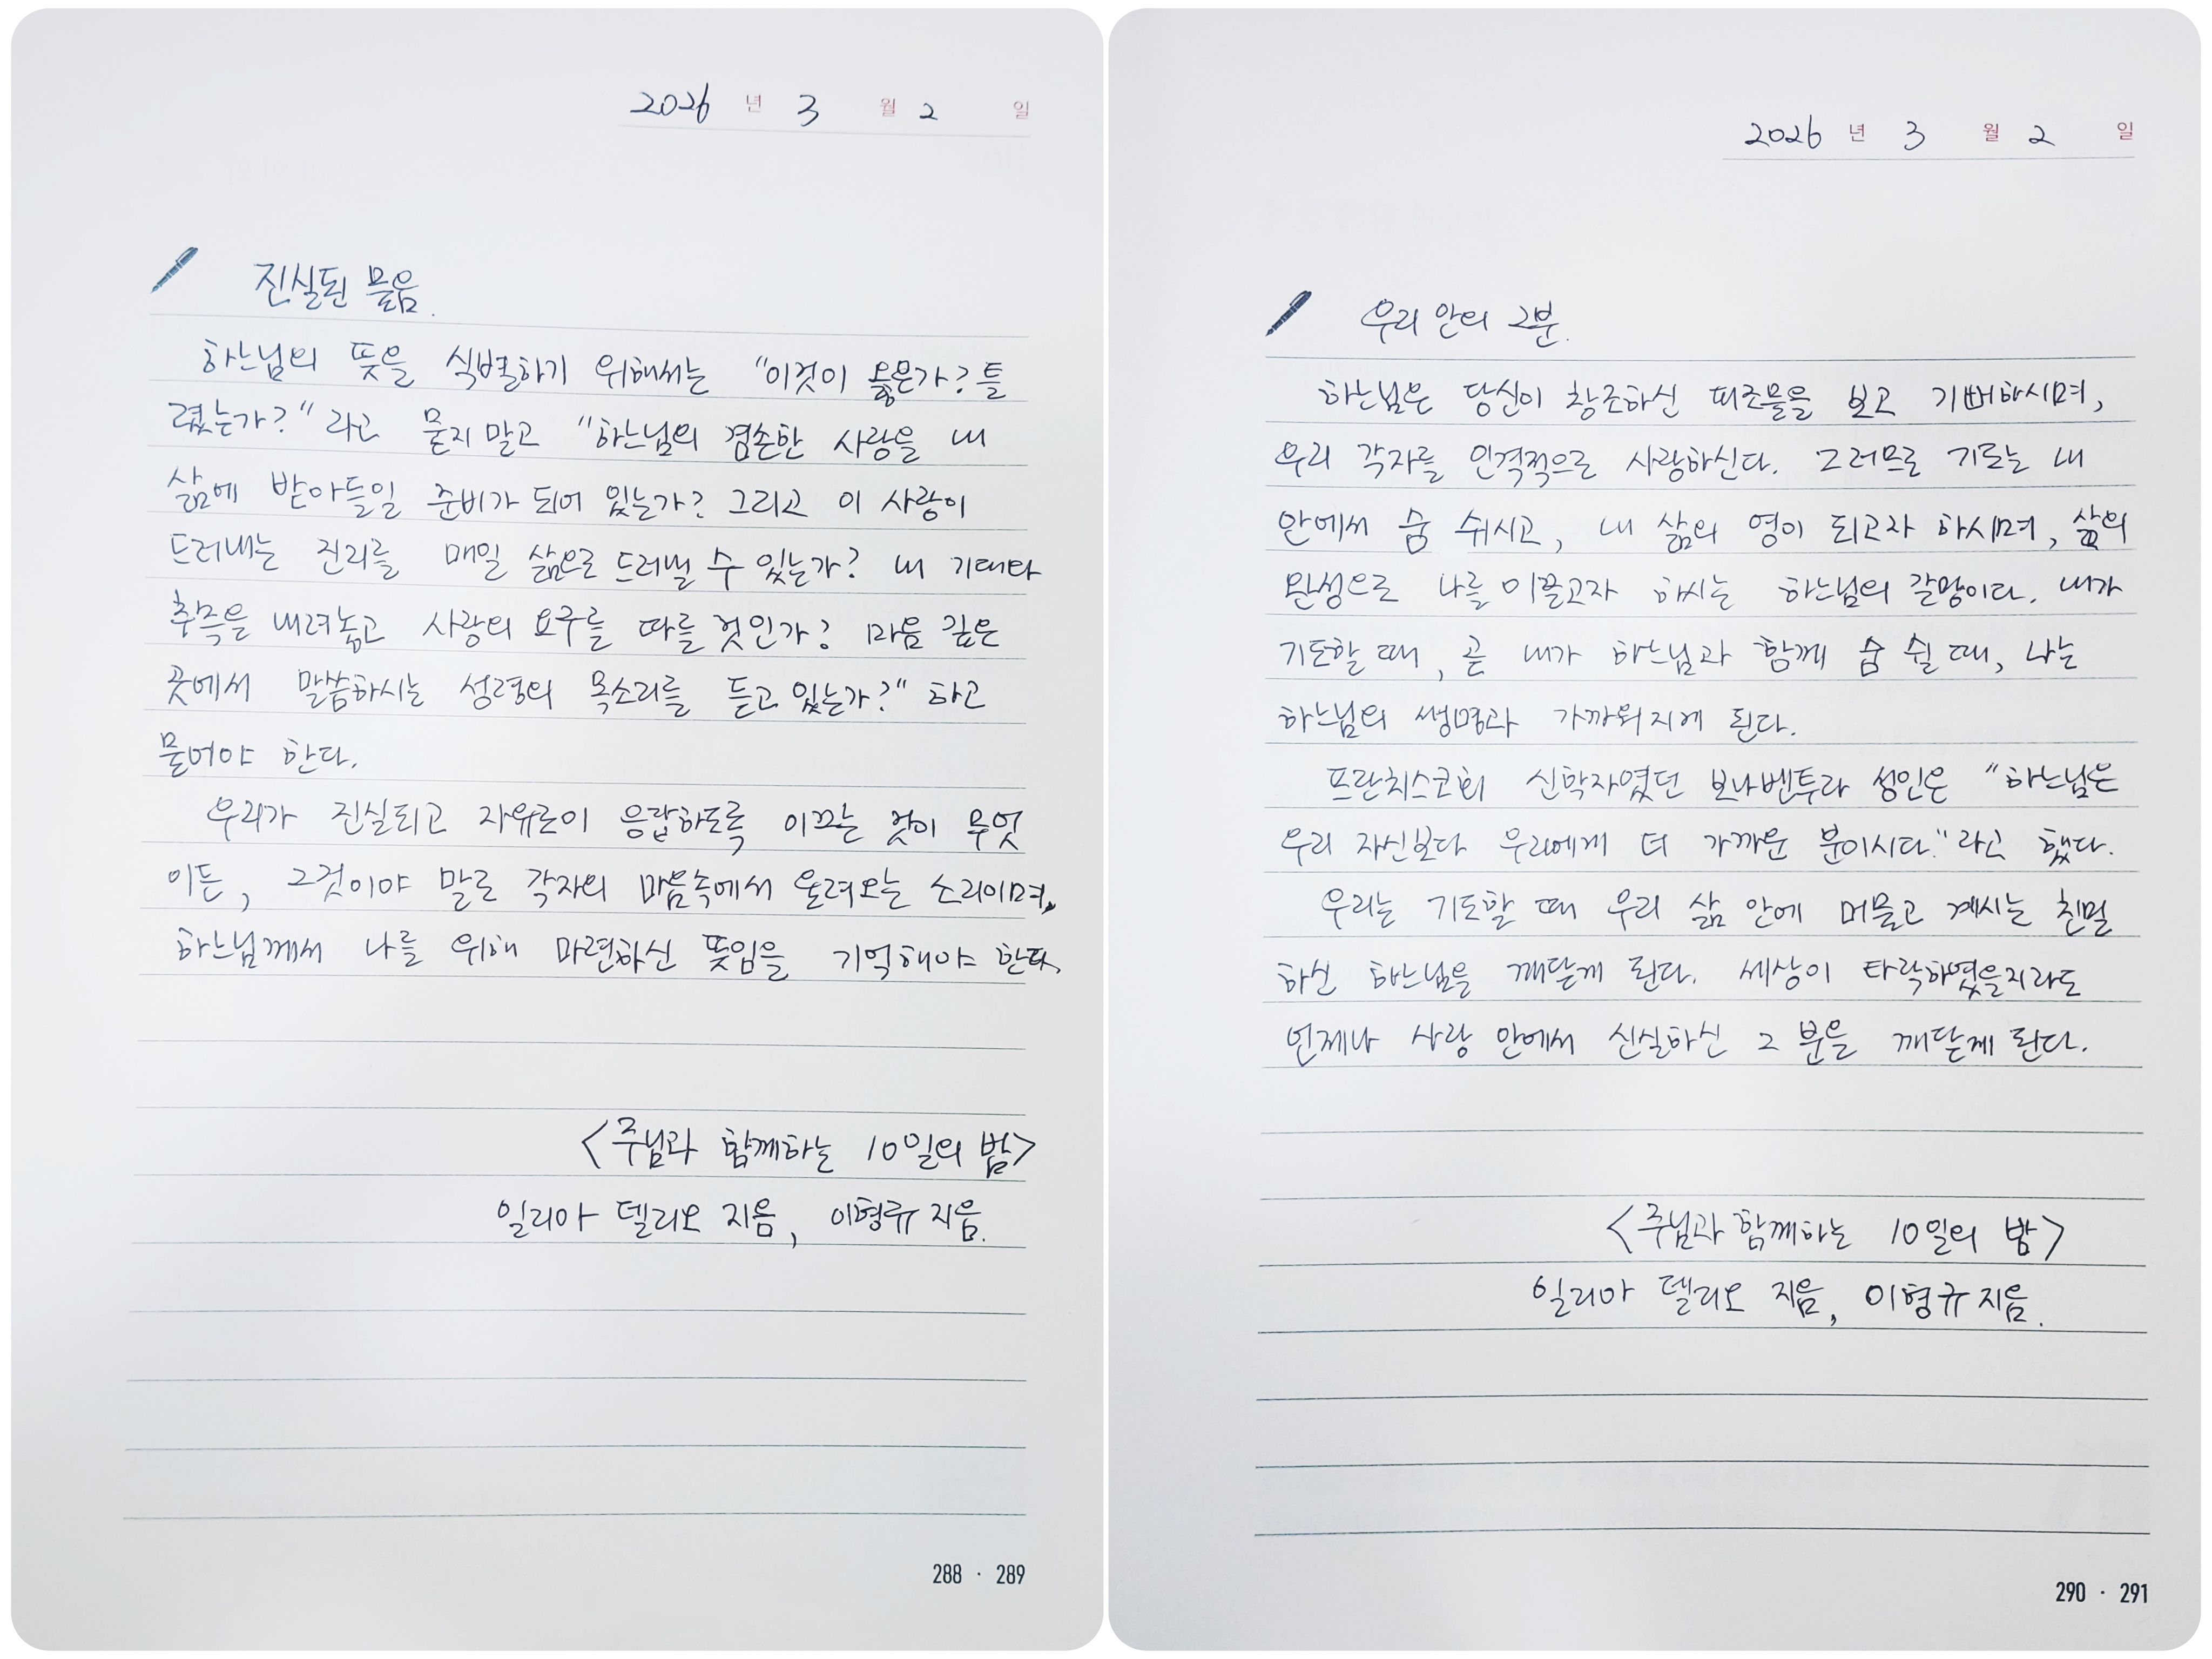 2026 년 3 월 2 일
진실된 물음.
하느님의 뜻을 식별하기 위해서는 "이것이 옳은가? 틀
렸는가?" 라고 묻지 말고 "하느님의 겸손한 사랑을 내
삶에 받아들일 준비가 되어 있는가? 그리고 이 사랑이
드러내는 진리를 매일 삶으로 드러낼 수 있는가? 내 기대나
추측을 내려놓고 사랑의 요구를 따를 것인가? 마음 깊은
곳에서 말씀하시는 성령의 목소리를 듣고 있는가?" 하고
물어야 한다.
우리가 진실되고 자유로이 응답하도록 이끄는 것이 무엇
이든, 그것이야 말로 각자의 마음속에서 울려오는 소리이며,
하느님께서 나를 위해 마련하신 뜻임을 기억해야 한다.
<주님과 함께하는 10일의 밤>
일리아 델리오 지음, 이형규 지음.
288 · 289
2026 년 3 월 2 일
우리 안의 그분.
하느님은 당신이 창조하신 피조물을 보고 기뻐하시며,
우리 각자를 인격적으로 사랑하신다. 그러므로 기도는 내
안에서 숨 쉬시고, 내 삶의 영이 되고자 하시며, 삶의
완성으로 나를 이끌고자 하시는 하느님의 갈망이다. 내가
기도할 때, 곧 내가 하느님과 함께 숨 쉴 때, 나는
하느님의 생명과 가까워지게 된다.
프란치스코회 신학자였던 보나벤투라 성인은 "하느님은
우리 자신보다 우리에게 더 가까운 분이시다." 라고 했다.
우리는 기도할 때 우리 삶 안에 머물고 계시는 친밀
하신 하느님을 깨닫게 된다. 세상이 타락하였을지라도
언제나 사랑 안에서 신실하신 그 분을 깨닫게 된다.
<주님과 함께하는 10일의 밤>
일리아 델리오 지음, 이형규 지음.
290 · 291